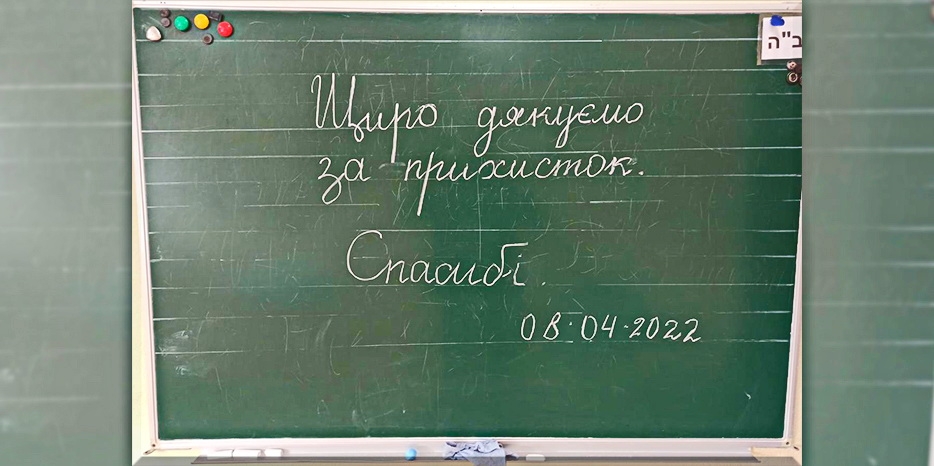 ב"ה
Щиро дякуємо
за прихисток.
Спасибі.
08.04.2022